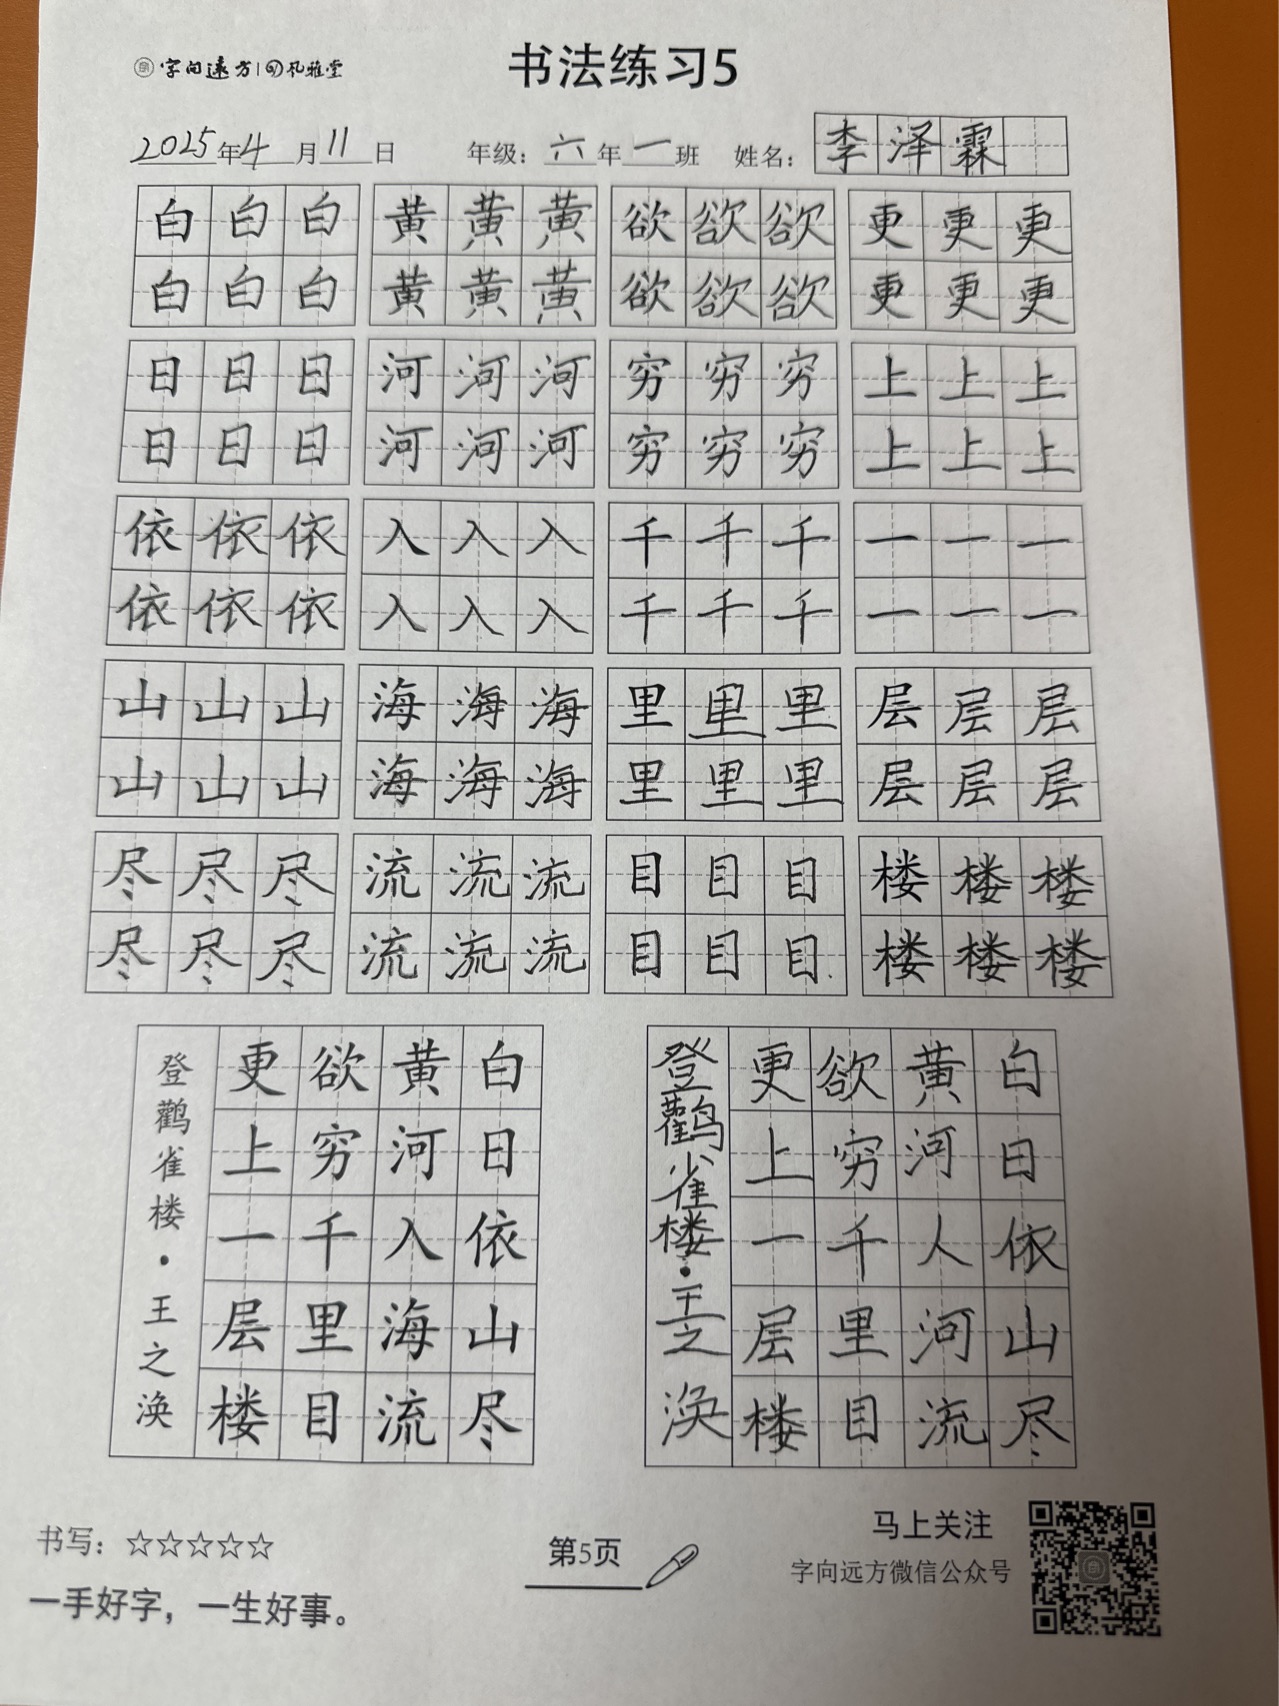 字向远方 孔雅堂
书法练习5
2025年4月11日 年级：六年一班 姓名：李泽霖
白白白 黄黄黄 欲欲欲 更更更
白白白 黄黄黄 欲欲欲 更更更
日日日 河河河 穷穷穷 上上上
日日日 河河河 穷穷穷 上上上
依依依 入入入 千千千 一一一
依依依 入入入 千千千 一一一
山山山 海海海 里里里 层层层
山山山 海海海 里里里 层层层
尽尽尽 流流流 目目目 楼楼楼
尽尽尽 流流流 目目目 楼楼楼
白日依山尽
黄河入海流
欲穷千里目
更上一层楼
登鹳雀楼·王之涣
白日依山尽
黄河人河流
欲穷千里目
更上一层楼
登鹳雀楼·王之涣
书写：☆☆☆☆☆
一手好字，一生好事。
第5页
马上关注
字向远方微信公众号